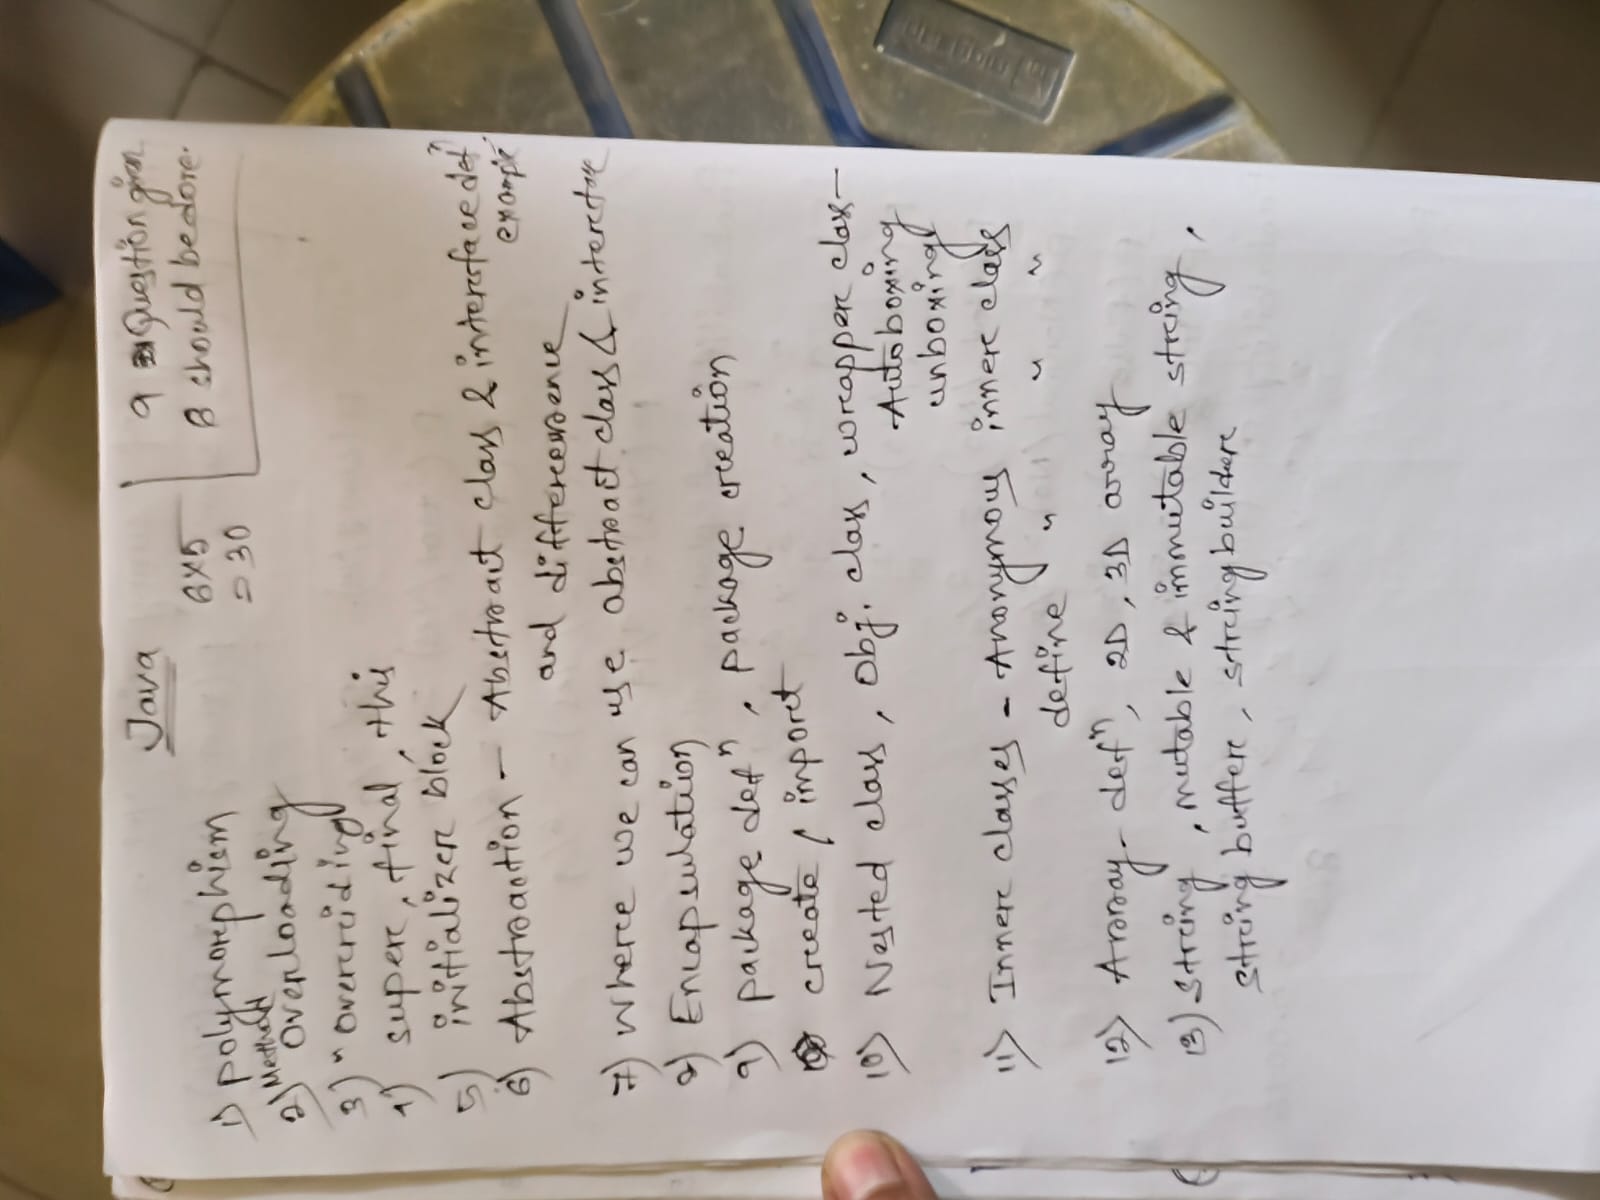 Java
6x5
= 30
9 Question given
8 should be done.
1) polymorephism
2) Method Overloading
3) " overreiding
4) supere, final, this
5) initializere block
6) Abstraction - Abstract class & intereface defn
example
and difference
7) Wheree we can use abstract class & intereface
8) Encapsulation
9) package defn, package creation
create / imporet
10) Nested class, Obj. class, wrapper class -
Autoboxing
unboxing
11) Innere classes - Anonymous innere class
define " " "
12) Array - defn, 2D, 3D array
13) Streing, mutable & immutable streing,
streing buffere, streing buildere